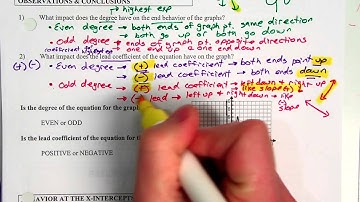 OBSERVATIONS & CONCLUSIONS
→ highest exp
1) What impact does the degree have on the end behavior of the graphs?
• Even degree → both ends of graph pt. same direction
→ both go up or both go down
• Odd degree → ends of graph pt. opposite directions
one end up & one end down
2) What impact does the lead coefficient have on the
(+) (-) • Even degree → (+) lead coefficient → both ends point up
(-) lead coefficient → both ends down
• Odd degree → (+) lead coefficient → left down + right up
like slope (+)
lead → left up + right down → like
(-)
slope
Is the degree of the equation for the graph
EVEN or ODD
Is the lead coefficient of the equation for the
POSITIVE or NEGATIVE
AVIOR AT THE X-INTERCEP